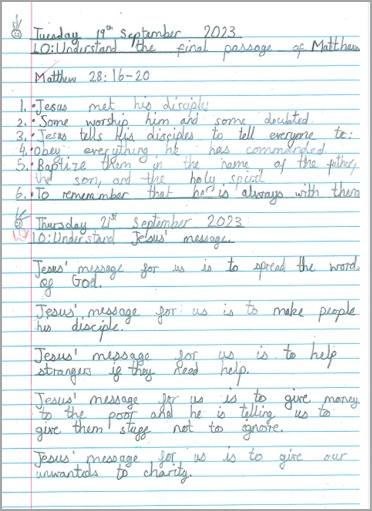 Tuesday 19th September 2023
LO: Understand the final passage of Matthew
Matthew 28:16-20
1. • Jesus met his disciples
2. • Some worship him and some doubted
3. • Jesus tells his disciples to tell everyone to:
4. • Obey everything he has commanded
5. • Baptize them in the name of the father,
the son, and the holy spirit
6. • To remember that he is always with them
Thursday 21st September 2023
LO: Understand Jesus' message.
Jesus' message for us is to spread the word
of God.
Jesus' message for us is to make people
his disciple.
Jesus' message for us is to help
strangers if they need help.
Jesus' message for us is to give money
to the poor and he is telling us to
give them stuff not to ignore.
Jesus' message for us is to give our
unwanteds to charity.